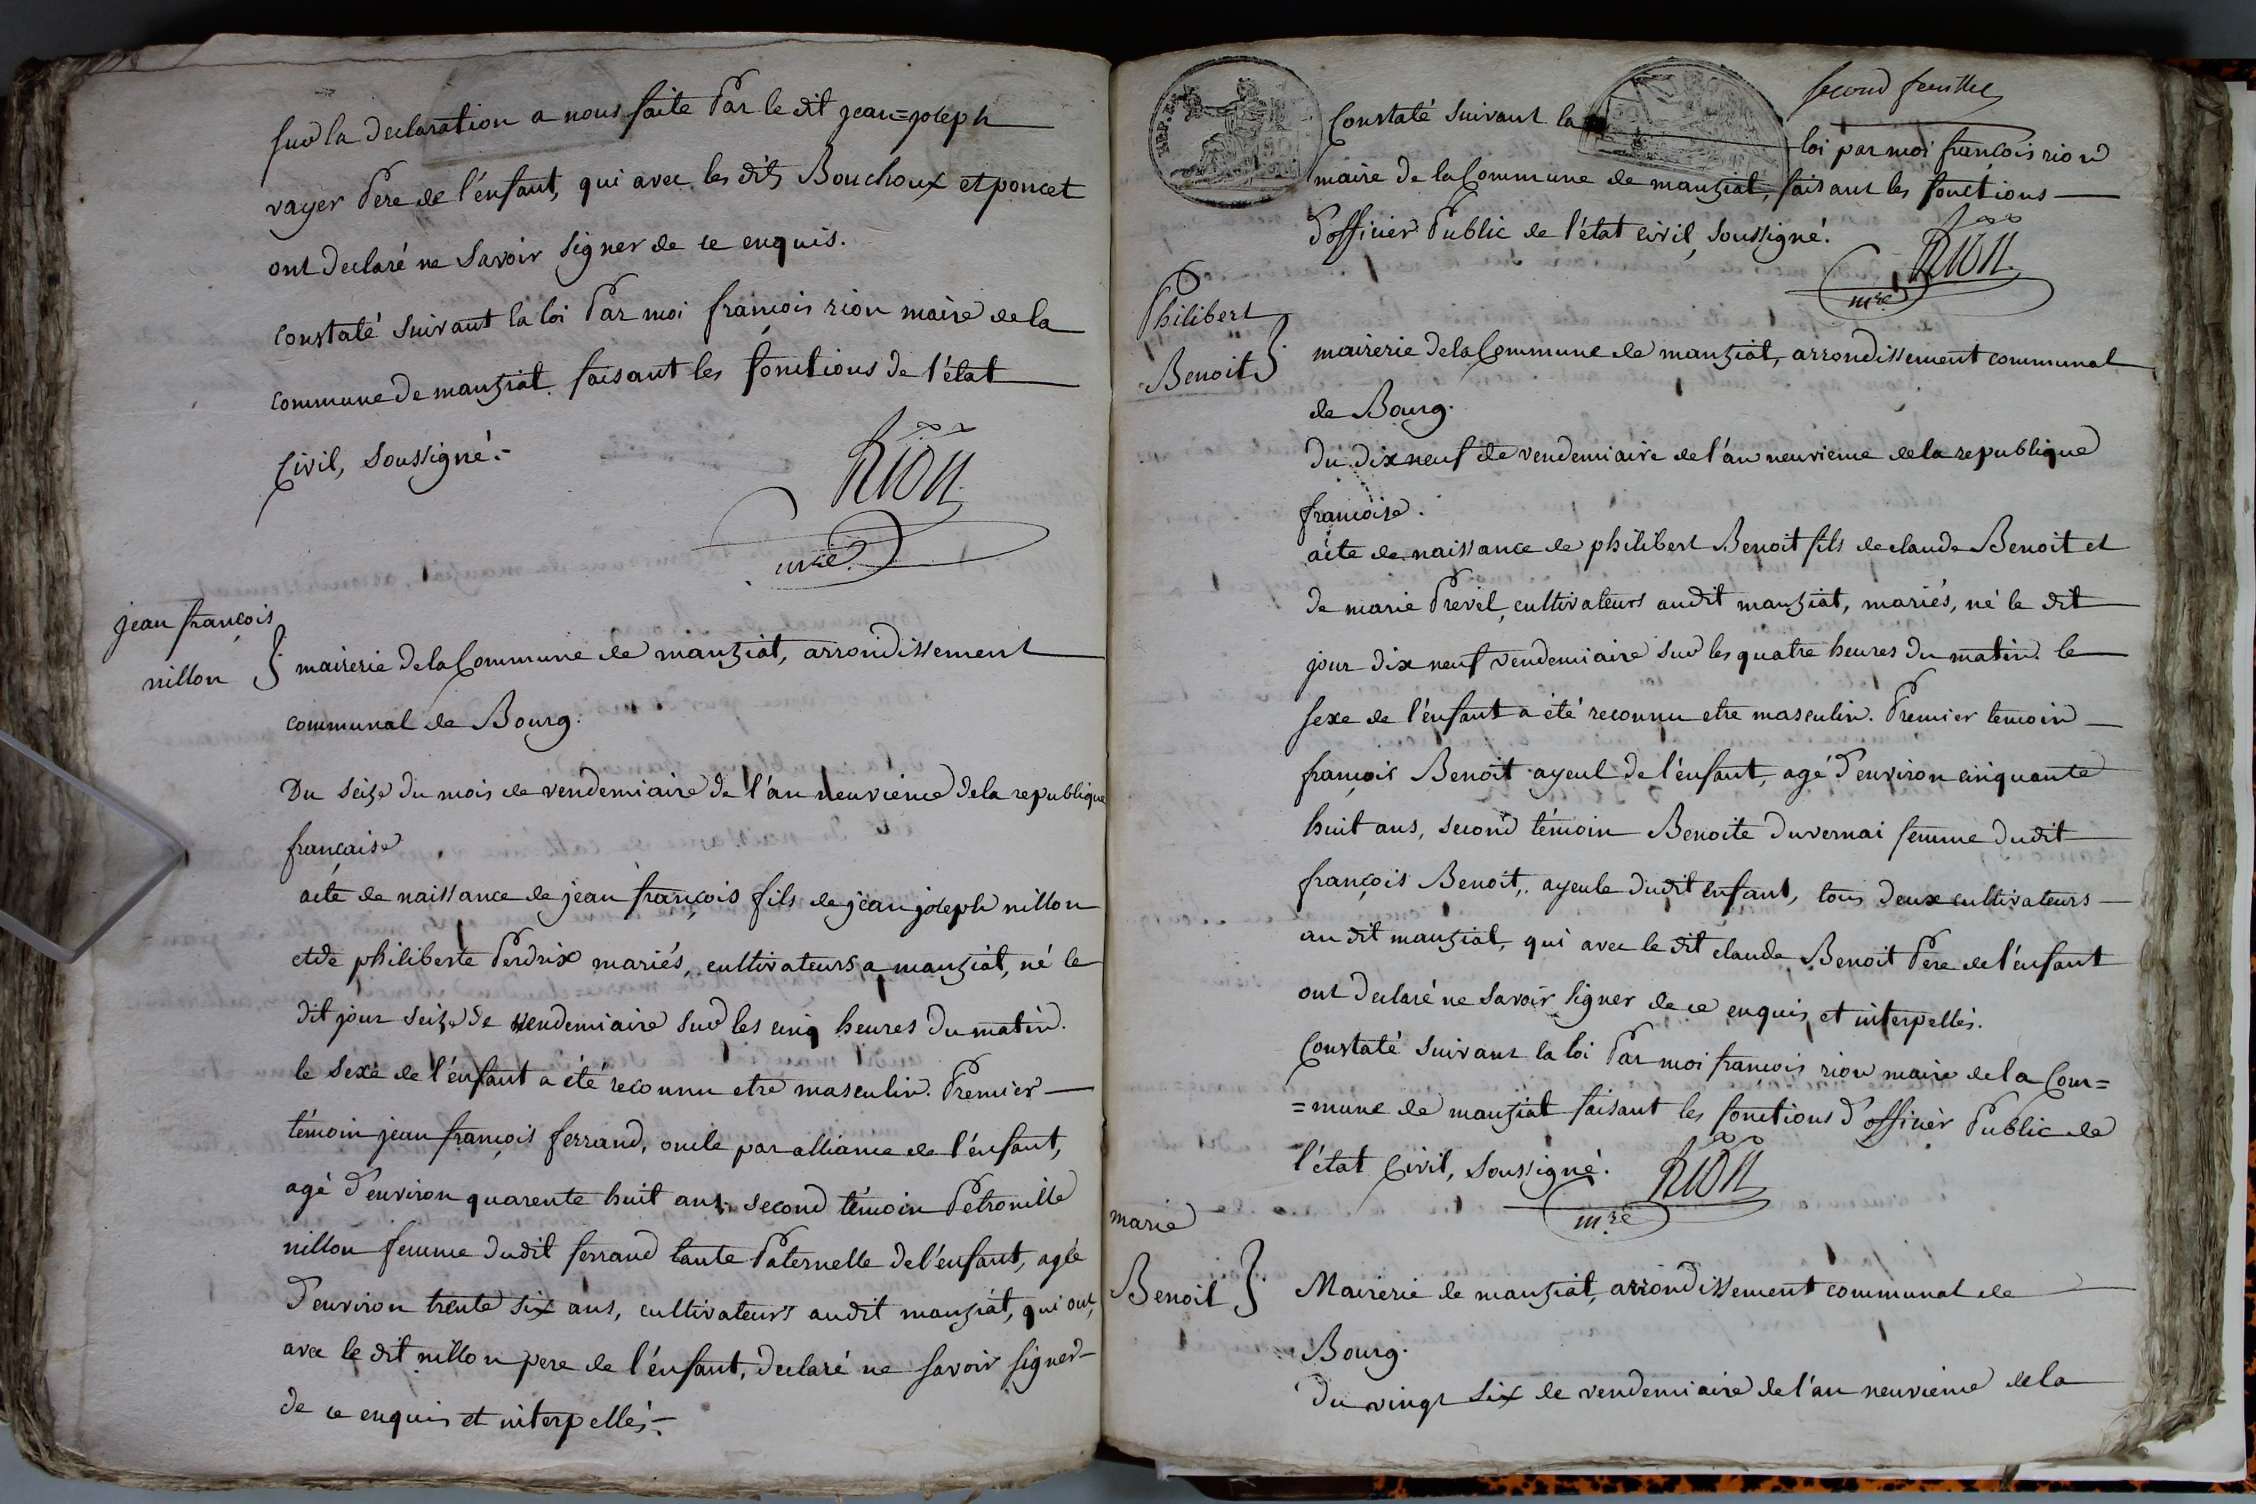 sur la declaration a nous faite Par le dit jean=joseph
vayer Pere de l'énfant, qui avec les dits Bouchoux et poncet
ont declaré ne savoir signer de ce enquis.
constaté suivant la loi Par moi françois rion maire de la
commune de manziat faisant les fonctions de l'état
Civil, soussigné.
Rion
mre
jean françois
nillon
mairerie de la Commune de manziat, arrondissement
communal de Bourg.
Du seize du mois de vendemiaire de l'an neuvieme de la republique
française
acte de naissance de jean françois fils de jean joseph nillon
et de philiberte Perdrix mariés, cultivateurs a manziat, né le
dit jour seize de vendemiaire sur les cinq heures du matin.
le sexe de l'énfant a été reconnu etre masculin. Premier
témoin jean françois ferrand, oncle par alliance de l'énfant,
agé d'environ quarente huit ans, second témoin Petronille
nillon femme dudit ferrand tante Paternelle de l'énfant, agée
d'environ trente six ans, cultivateurs audit manziat, qui ont,
avec le dit nillon pere de l'énfant, declaré ne savoir signer
de ce enquis et interpellés.
REP. FRA
second feuillet
Constaté suivant la loi par moi françois rion
maire de la Commune de manziat, faisant les fonctions
d'officier Public de l'état civil, soussigné.
Rion
mre
Philibert
Benoit
mairerie de la Commune de manziat, arrondissement communal
de Bourg.
Du dix neuf de vendemiaire de l'an neuvieme de la republique
françoise.
acte de naissance de philibert Benoit fils de claude Benoit et
de marie Prevel, cultivateurs audit manziat, mariés, né le dit
jour dix neuf vendemiaire sur les quatre heures du matin. le
sexe de l'énfant a été reconnu etre masculin. Premier temoin
françois Benoit ayeul de l'énfant, agé d'environ cinquante
huit ans, second témoin Benoite duvernai femme dudit
françois Benoit, ayeule dudit enfant, tous deux cultivateurs
au dit manziat, qui avec le dit claude Benoit Pere de l'énfant
ont declaré ne savoir signer de ce enquis et interpellés.
Constaté suivant la loi Par moi françois rion maire de la Com=
=mune de manziat faisant les fonctions d'officier Public de
l'état Civil, soussigné.
Rion
mre
marie
Benoit
Mairerie de manziat, arrondissement communal de
Bourg.
Du vingt six de vendemiaire de l'an neuvieme de la